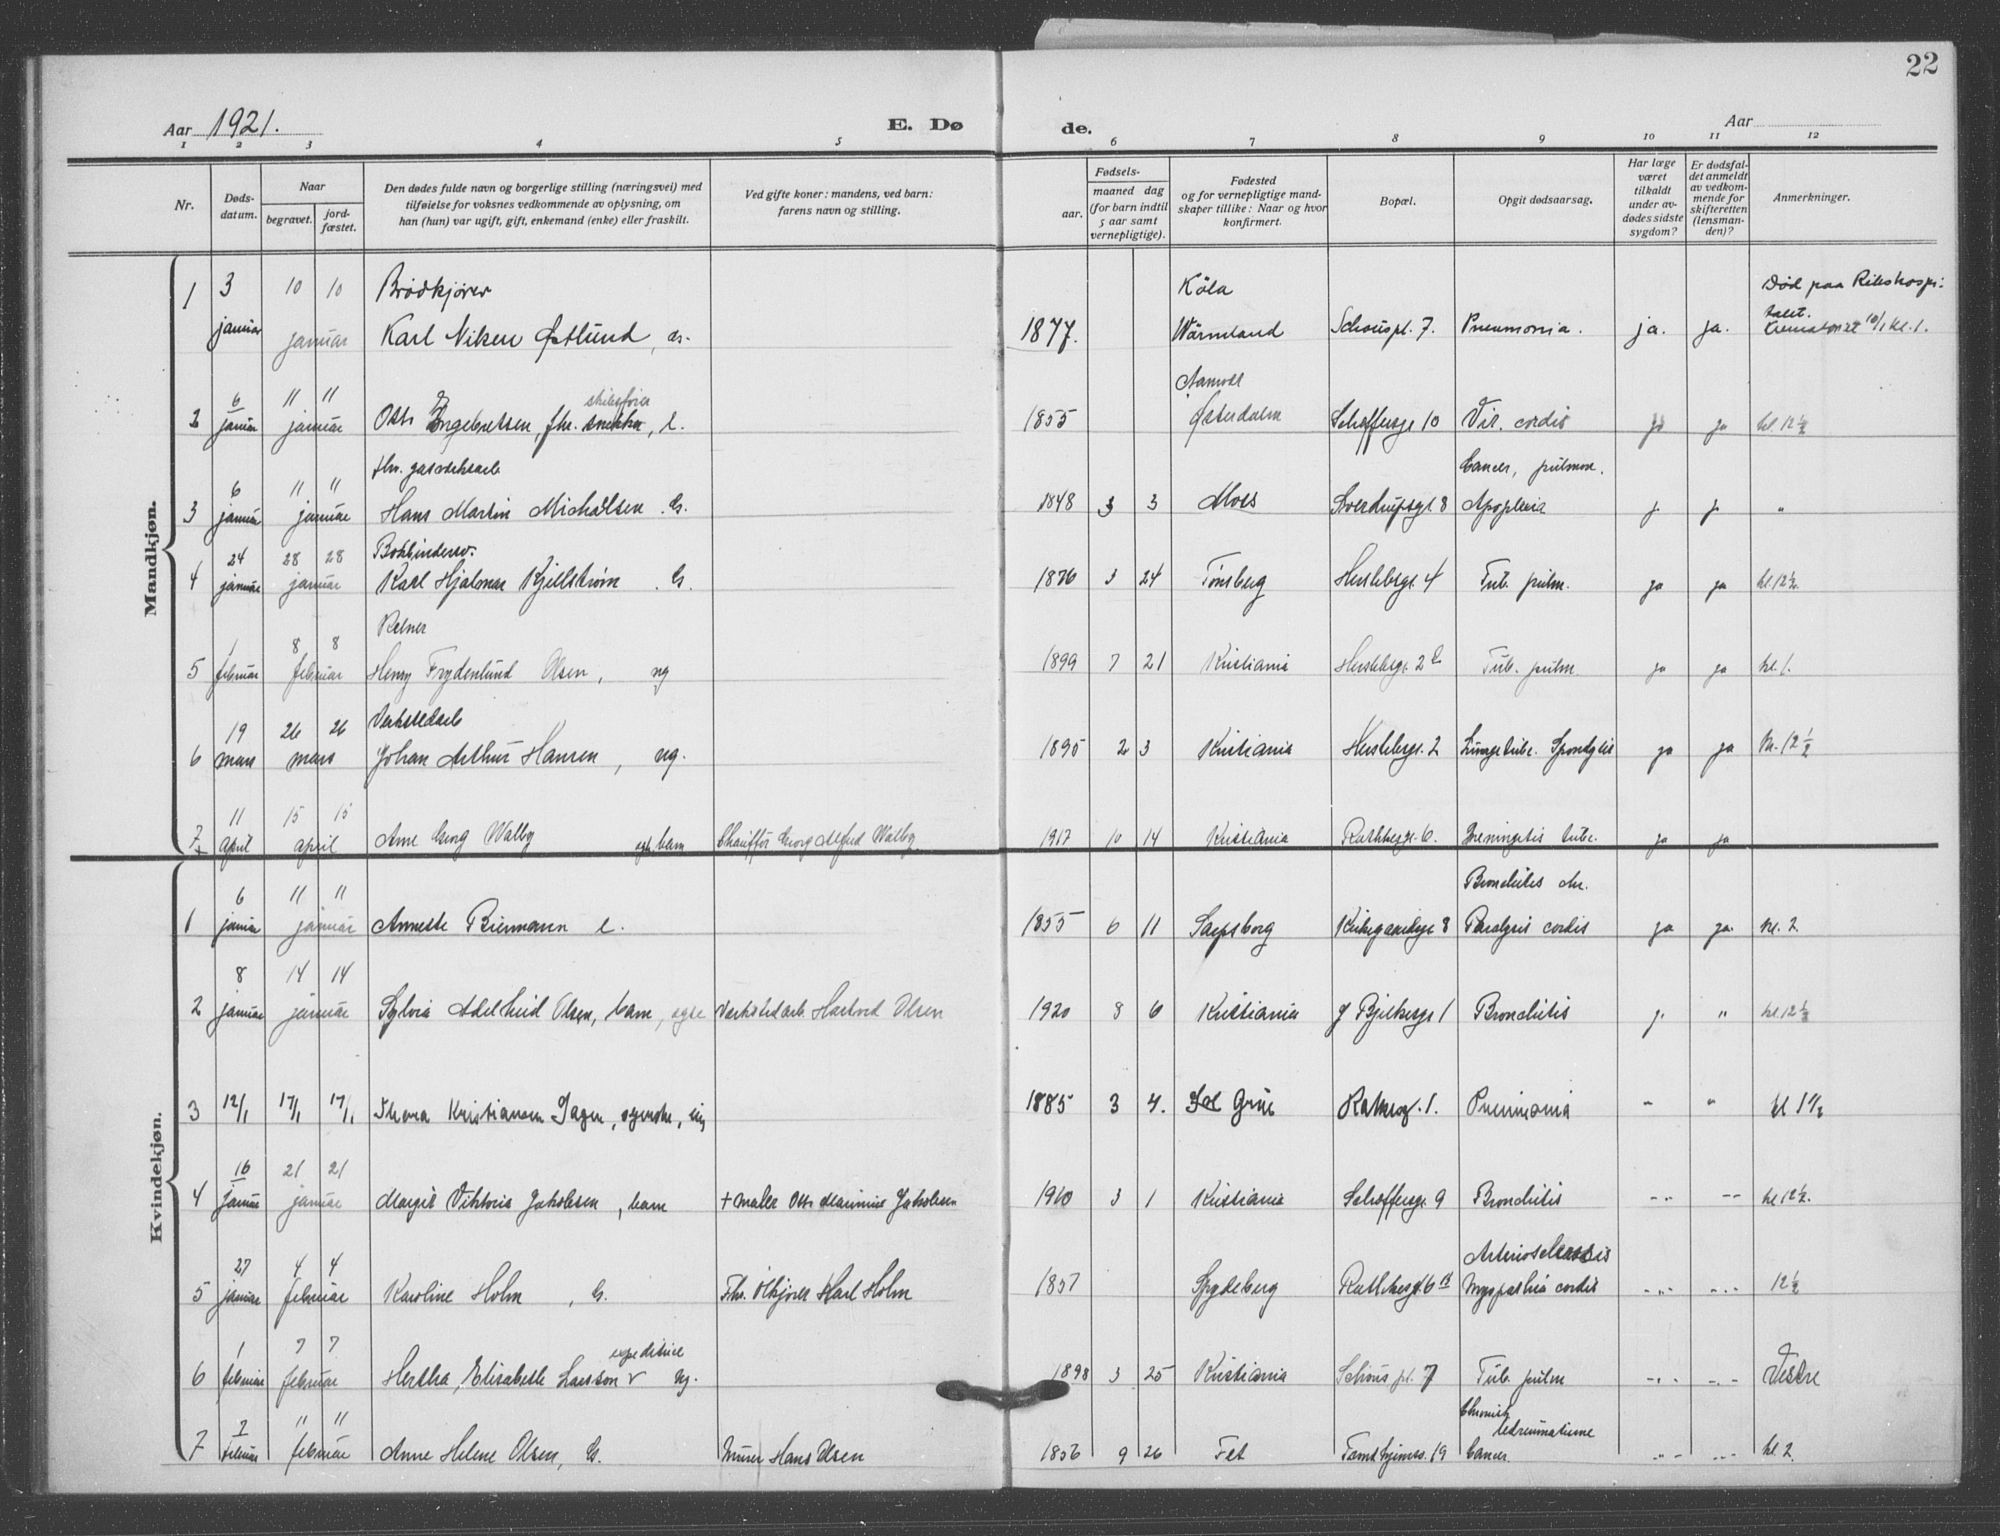 22
Aar 1921.
E. Dø
de.
Aar
1 2 3 4 5 6 7 8 9 10 11 12
Nr.
Døds-
datum.
Naar
begravet.
jord-
fæstet.
Den dødes fulde navn og borgerlige stilling (næringsvei) med
tilføielse for voksnes vedkommende av oplysning, om
han (hun) var ugift, gift, enkemand (enke) eller fraskilt.
Ved gifte koner: mandens, ved barn:
farens navn og stilling.
Fødsels-
aar.
maaned dag
(for barn indtil
5 aar samt
vernepligtige).
Fødested
og for vernepligtige mand-
skaper tillike: Naar og hvor
konfirmert.
Bopæl.
Opgit dødsaarsag.
Har læge
været
tilkaldt
under av-
dødes sidste
sygdom?
Er dødsfal-
det anmeldt
av vedkom-
mende for
skifteretten
(lensman-
den)?
Anmerkninger.
Mandkjøn.
3 10 10 Brødkjører Köla Død paa Rikshospi-
talet.
1 januar januar Karl Nilsen Østlund, 1877. Wärmland Schouspl. 7. Pneumonia. ja. ja. Krematoriet 10/1 kl. 1.
6 11 11 Aamodt
2 januar januar Otto Engebretsen, fhv. snekker, e. 1855 Østerdalen Schæffersgt 10 Vit. cordis ja ja kl. 12½
fhv. gasverksarb Cancer, pulmon.
6 11 11
3 januar januar Hans Martin Michaelsen. G. 1848 3 3 Moss Sverdrupsgt. 8 Apoplexia j. j. "
24 28 28 Bokbindersv.
4 januar januar Karl Hjalmar Kjellstrøm G. 1876 3 24 Tønsberg Herslebsgt 4 Tub. pulm. ja ja kl. 12½
1 8 8 Kelner
5 februar februar Henry Frydenlund Olsen, ug 1899 7 21 Kristiania Herslebsgt. 2 Tub. pulm ja ja kl. 1.
19 26 26 Verkstedarb
6 mars mars Johan Arthur Hansen, ug. 1895 2 3 Kristiania Herslebsgt. 2 Lungetub. Spondylit ja ja kl. 12½
11 15 15
7 april april Arne Georg Walby egte barn Chauffør Georg Alfred Walby. 1917 10 14 Kristiania Rathkesgt. 6. Meningitis tub. ja ja
Kvindekjøn.
6 11 11 Bronchitis chr.
1 januar januar Annette Biermann e. 1855 6 11 Sarpsborg Kirkegaardsgt 8 Paralysis cordis ja ja. kl. 2
8 14 14
2 januar januar Sylvia Adelheid Olsen, barn, egte Verkstedarb. Hartvid Olsen 1920 8 6 Kristiania Bjelkesgt 1 Bronchitis j. " kl 12½
3 12/1 17/1 17/1 Thora Kristiansen Sagen, 1885 3 4. Grue Rathkesgt. 1. Pneumonia " " kl 1½
16 21 21
4 januar januar Margit Viktoria Jakobsen, barn + maler Otto Marinius Jakobsen 1910 3 1 Kristiania Schæffersgt 9 Bronchitis -"- -"- kl 12½.
27 4 4 Arteriosclerosis
5 januar februar Karoline Holm, G. Fhv. Ølkjører Karl Holm 1857 Spydeberg Rathkesgt 6 B Myopathia cordis -"- -"- 12½
1 7 7 expeditrice
6 februar februar Hertha, Elisabeth Larsson ug. 1898 3 25 Kristiania Schous pl. 7 Tub. pulm -"- -"- Vestre
2 11 11 Chronisk
ledreumatisme
7 februar februar Anne Helene Olsen, G. Murer Hans Olsen 1856 9 26 Fet 19 Cancer. -"- -"- kl. 2